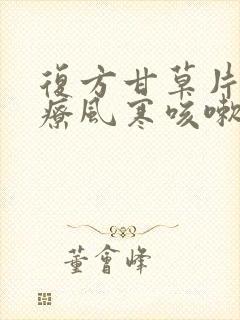 復方甘草片
療風寒咳嗽
董會峰